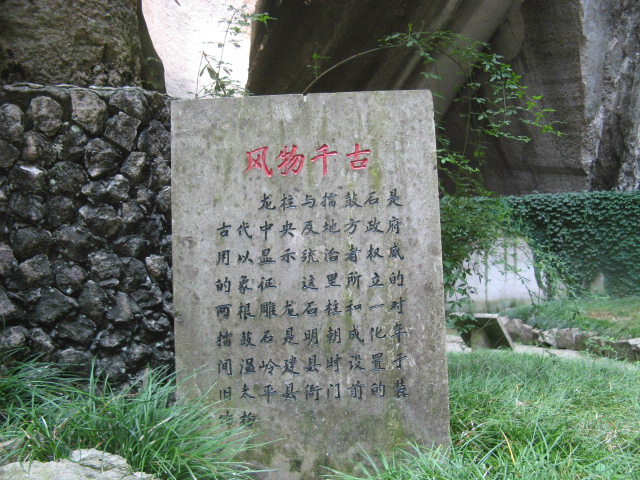 风物千古
龙柱与擂鼓石是
古代中央及地方政府
用以显示统治者权威
的象征。这里所立的
两根雕龙石柱和一对
擂鼓石是明朝成化年
间温岭建县时设置于
旧太平县衙门前的装
饰物